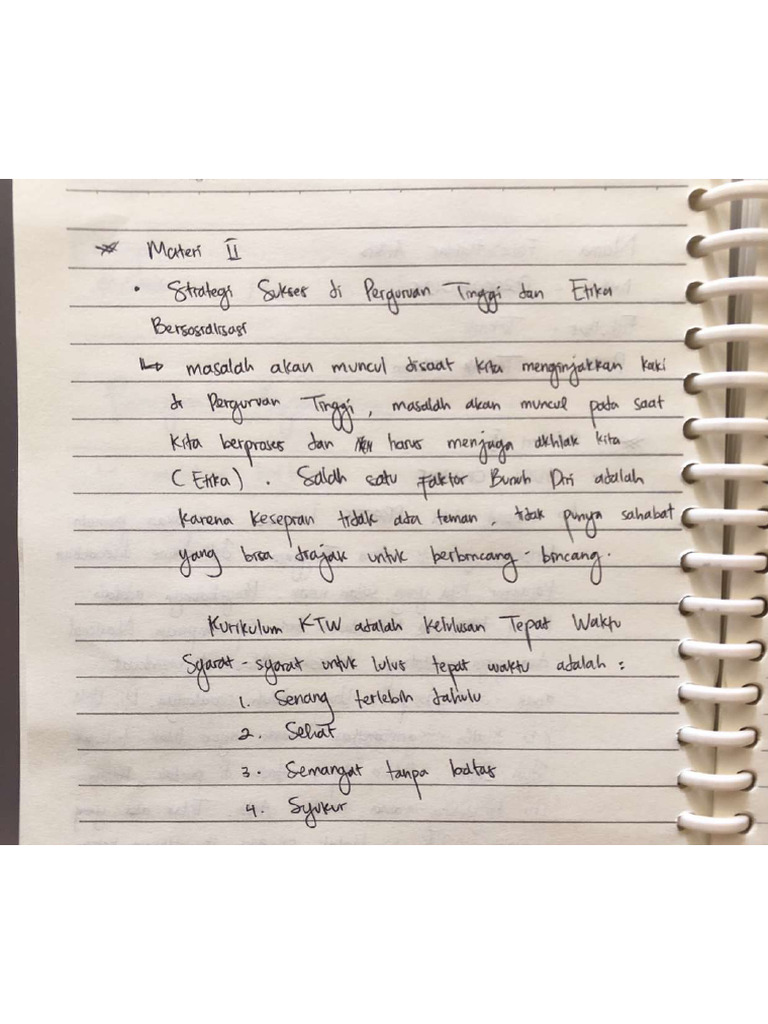 * Materi II
• Strategi Sukses di Perguruan Tinggi dan Etika
Bersosialisasi
↳ masalah akan muncul disaat kita menginjakkan kaki
di Perguruan Tinggi, masalah akan muncul pada saat
kita berproses dan harus menjaga akhlak kita
(Etika). Salah satu Faktor Bunuh Diri adalah
karena kesepian tidak ada teman, tidak punya sahabat
yang bisa diajak untuk berbincang-bincang.
Kurikulum KTW adalah Kelulusan Tepat Waktu
Syarat-syarat untuk lulus tepat waktu adalah :
1. Senang terlebih dahulu
2. Sehat
3. Semangat tanpa batas
4. Syukur